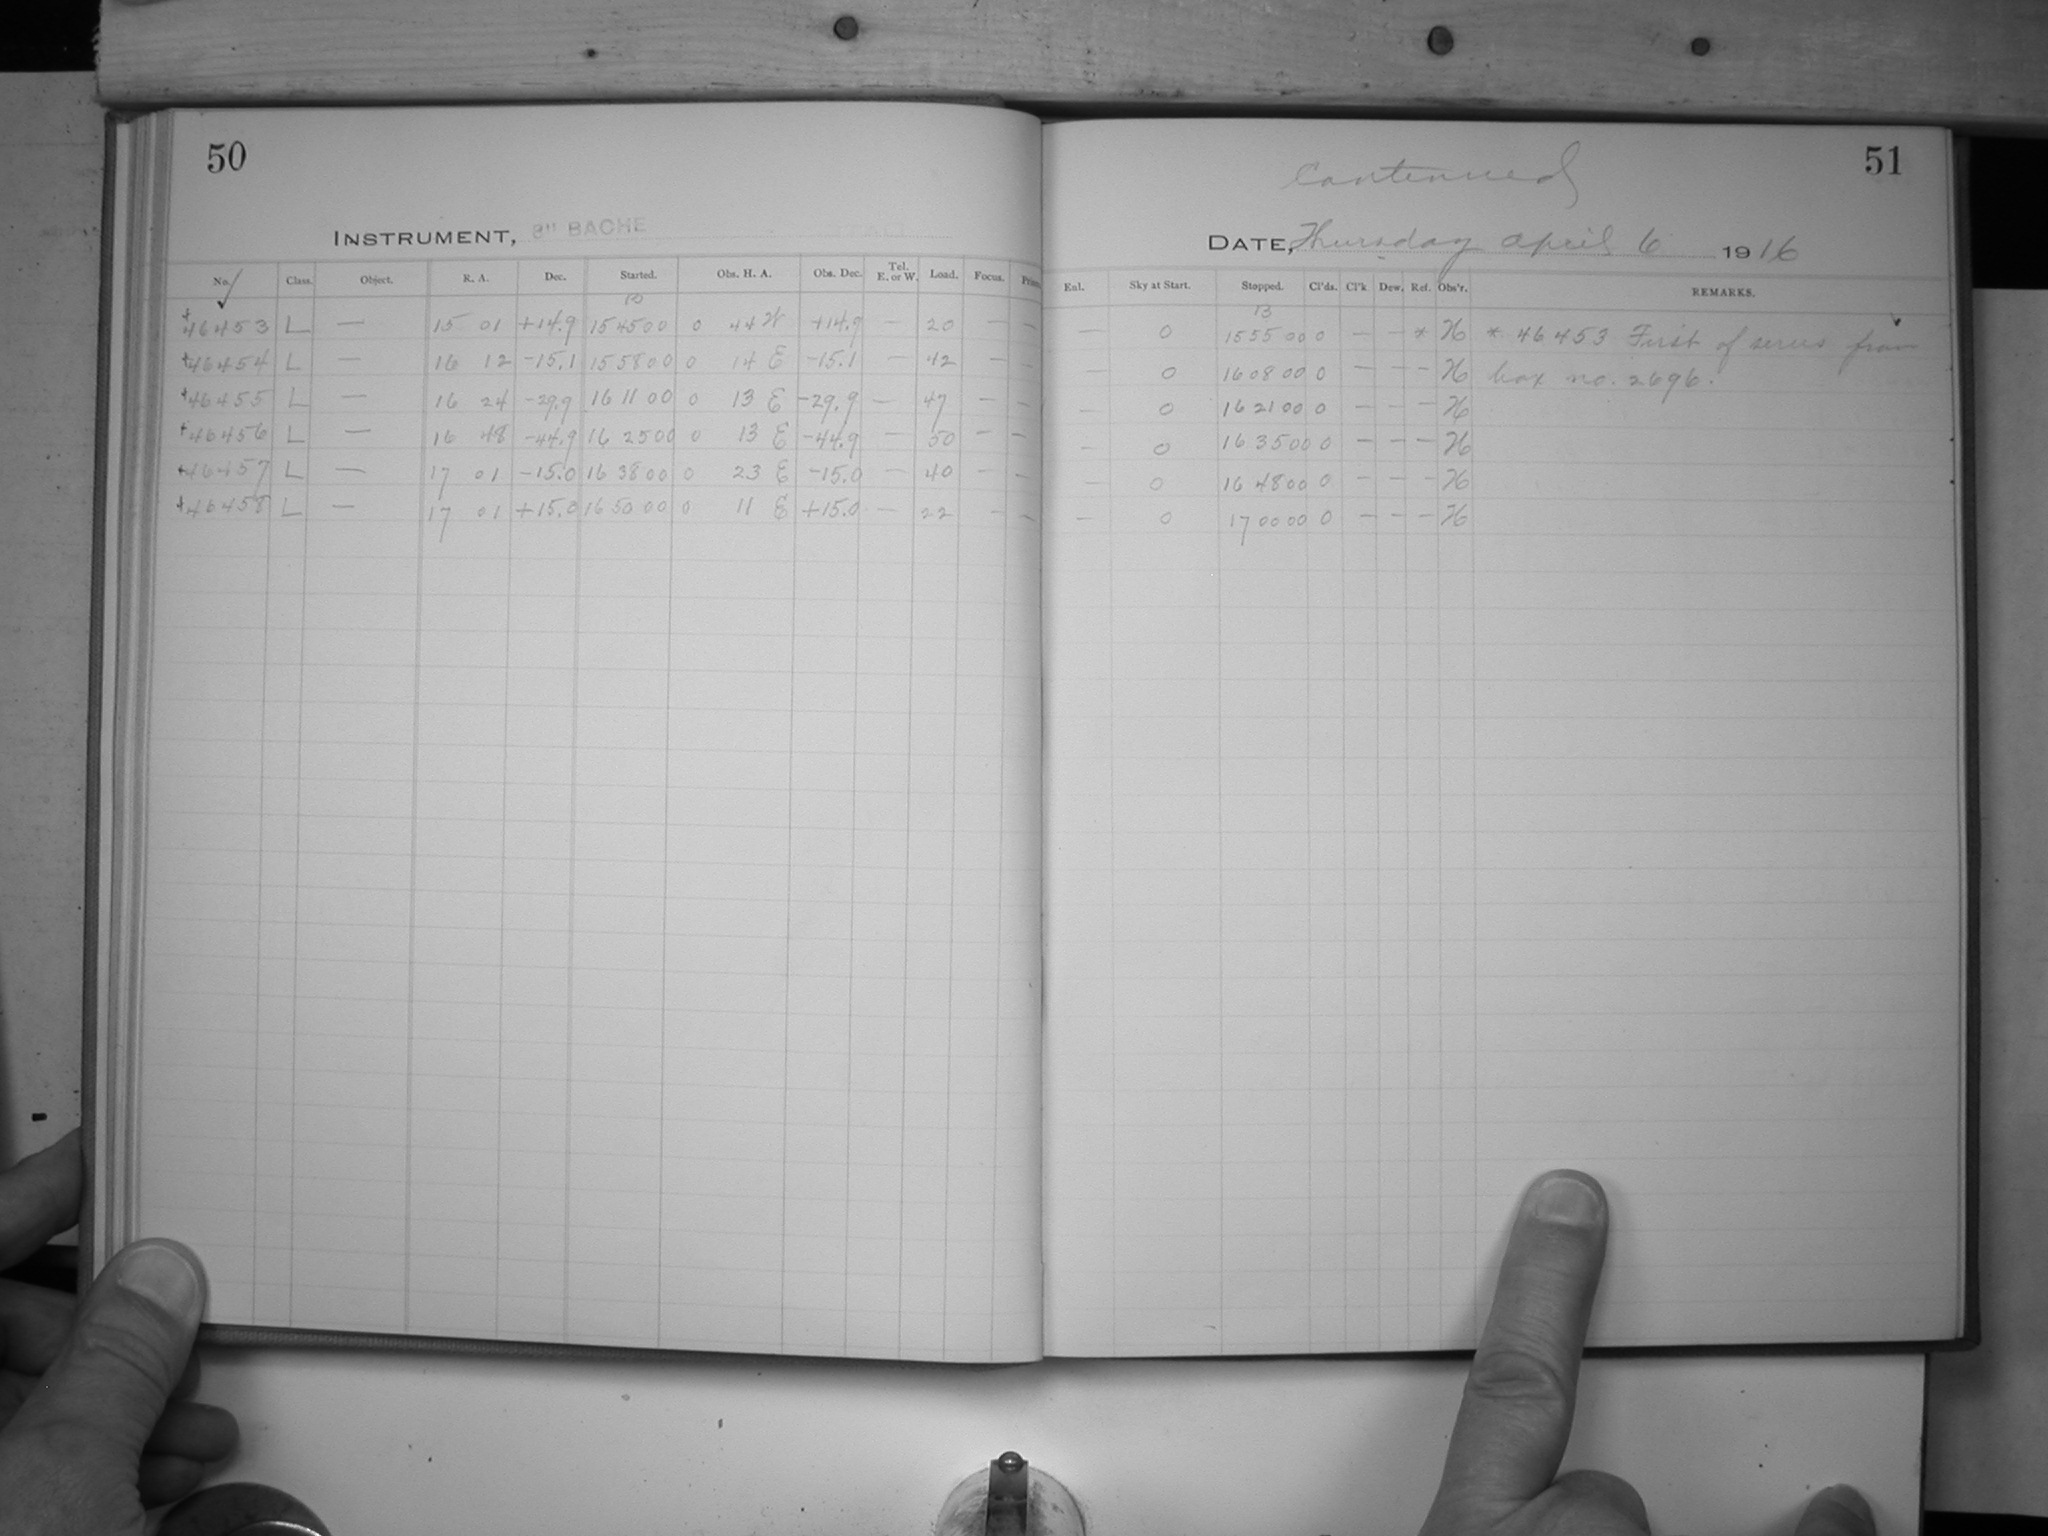 50
INSTRUMENT, 8" BACHE
No. Class. Object. R. A. Dec. Started. Obs. H. A. Obs. Dec. Tel. E. or W. Load. Focus.
46453 L — 15 01 +14.9 15 45 00 0 44 W +14.9 — 20 — —
46454 L — 16 12 -15.1 15 58 00 0 14 E -15.1 — 42 — —
46455 L — 16 24 -29.9 16 11 00 0 13 E -29.9 — 47 — —
46456 L — 16 48 -44.9 16 25 00 0 13 E -44.9 — 50 — —
46457 L — 17 01 -15.0 16 38 00 0 23 E -15.0 — 40 — —
46458 L — 17 01 +15.0 16 50 00 0 11 E +15.0 — 22 — —
51
Continued
DATE, Thursday April 6 1916
Enl. Sky at Start. Stopped. Cl'ds. Cl'k Dew. Ref. Obs'r. REMARKS.
13
— 0 15 55 00 0 — — * H * 46453 First of series from
— 0 16 08 00 0 — — — H box no. 2696.
— 0 16 21 00 0 — — — H
— 0 16 35 00 0 — — — H
— 0 16 48 00 0 — — — H
— 0 17 00 00 0 — — — H